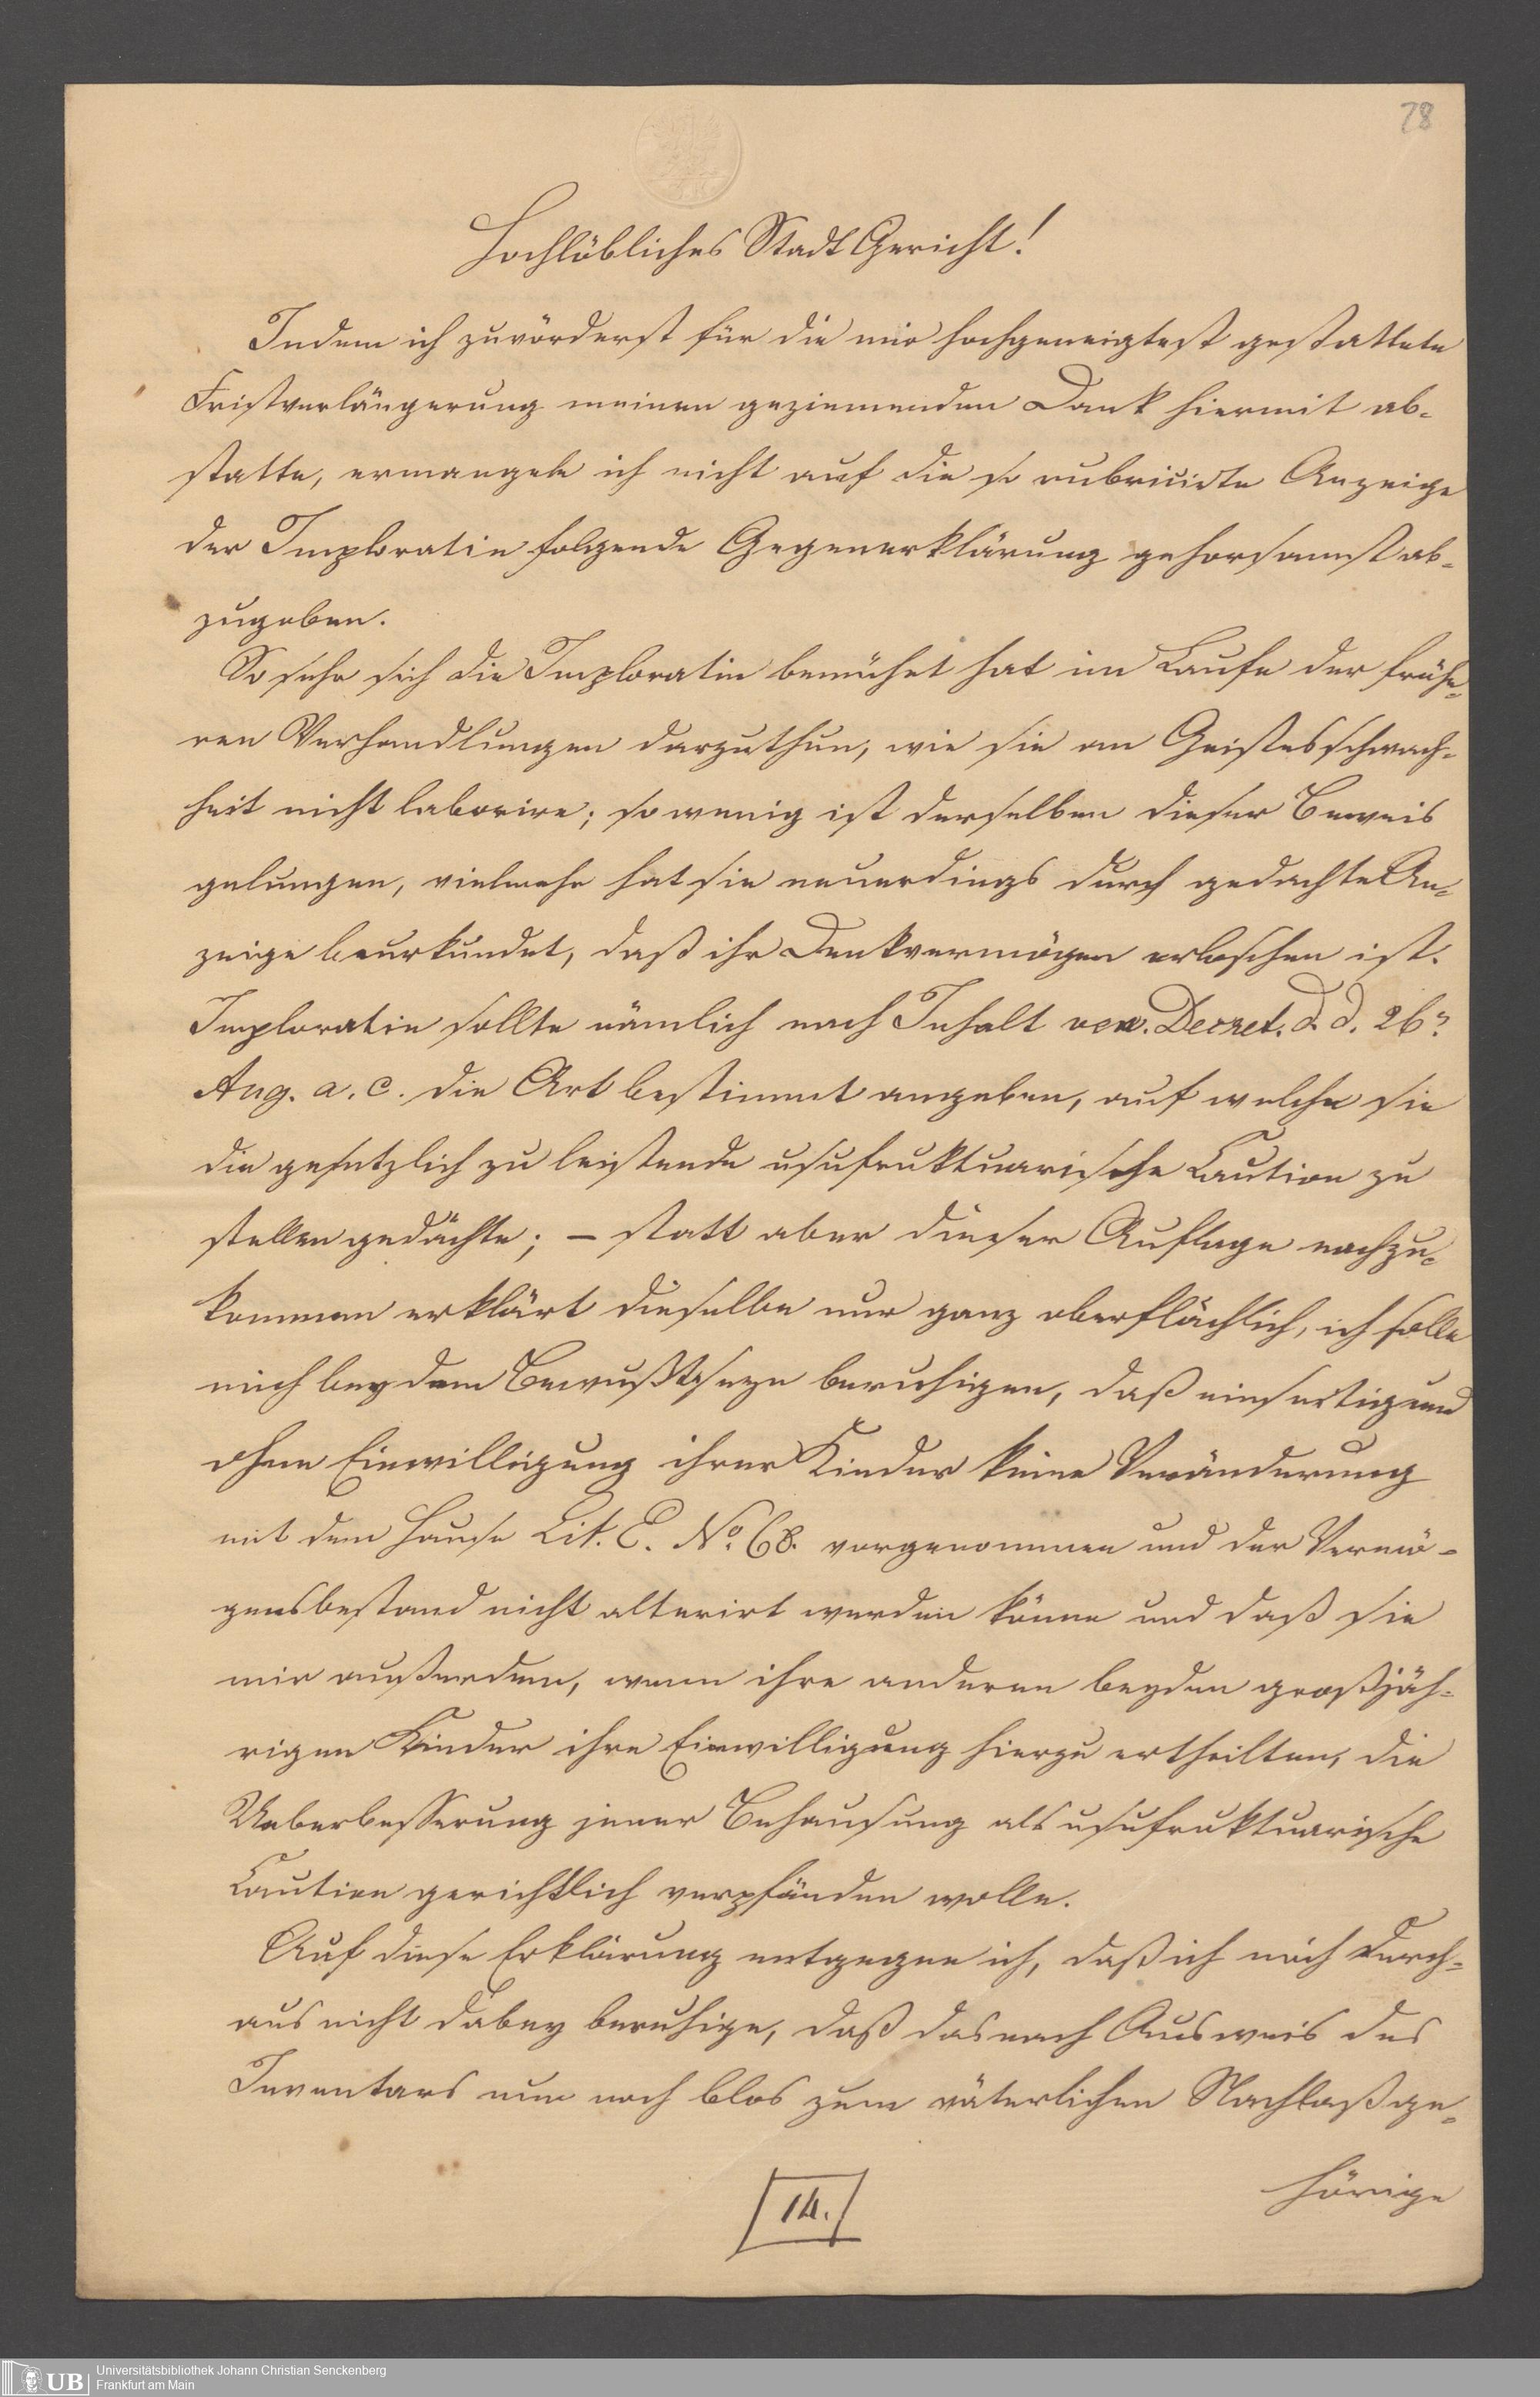 78
Hochlöbliches Stadt Gericht!
Indem ich zuvörderst für die mir hochgeneigtest gestattete
Fristverlängerung meinen geziemenden Dank hiermit ab-
statte, ermangele ich nicht auf die so rubricirte Anzeige
der Imploratin folgende Gegenerklärung gehorsamst ab-
zugeben.
So sehr sich die Imploratin bemühet hat im Laufe der frühe-
ren Verhandlungen darzuthun, wie sie an Geistesschwach-
heit nicht laborire; so wenig ist derselben dieser Beweis
gelungen, vielmehr hat sie neuerdings durch gedachte An-
zeige beurkundet, daß ihr Denkvermögen erloschen ist.
Imploratin sollte nämlich nach Inhalt ven. Decret. d. d. 26?
Aug. a. c. die Art bestimmt angeben, auf welche sie
die gesetzlich zu leistende usufruktuarische Caution zu
stellen gedächte; – statt aber dieser Auflage nachzu-
kommen erklärt dieselbe nur ganz oberflächlich, ich solle
mich bey dem Bewußtseyn beruhigen, daß einseitig und
ohne Einwilligung ihrer Kinder keine Veränderung
mit dem Hause Lit. E. No. 68. vorgenommen und der Vermö-
gensbestand nicht alterirt werden könne und daß sie
mir außerdem, wenn ihre anderen beyden großjäh-
rigen Kinder ihre Einwilligung hierzu ertheilten, die
Ueberbesserung jener Behausung als usufruktuarische
Caution gerichtlich verpfänden wolle.
Auf diese Erklärung entgegne ich, daß ich mich durch-
aus nicht dabey beruhige, daß das nach Ausweis des
Inventars nun noch blos zum väterlichen Nachlaß ge-
hörige
14.
UB
Universitätsbibliothek Johann Christian Senckenberg
Frankfurt am Main